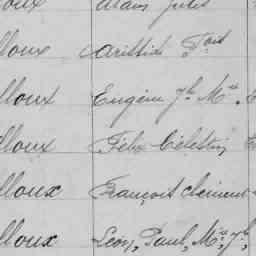 oux Alain Jules
lloux Aristide
lloux Eugène Jh Mie
lloux Félix Célestin
lloux François Clément
lloux Léon, Paul, Mie, Jh,